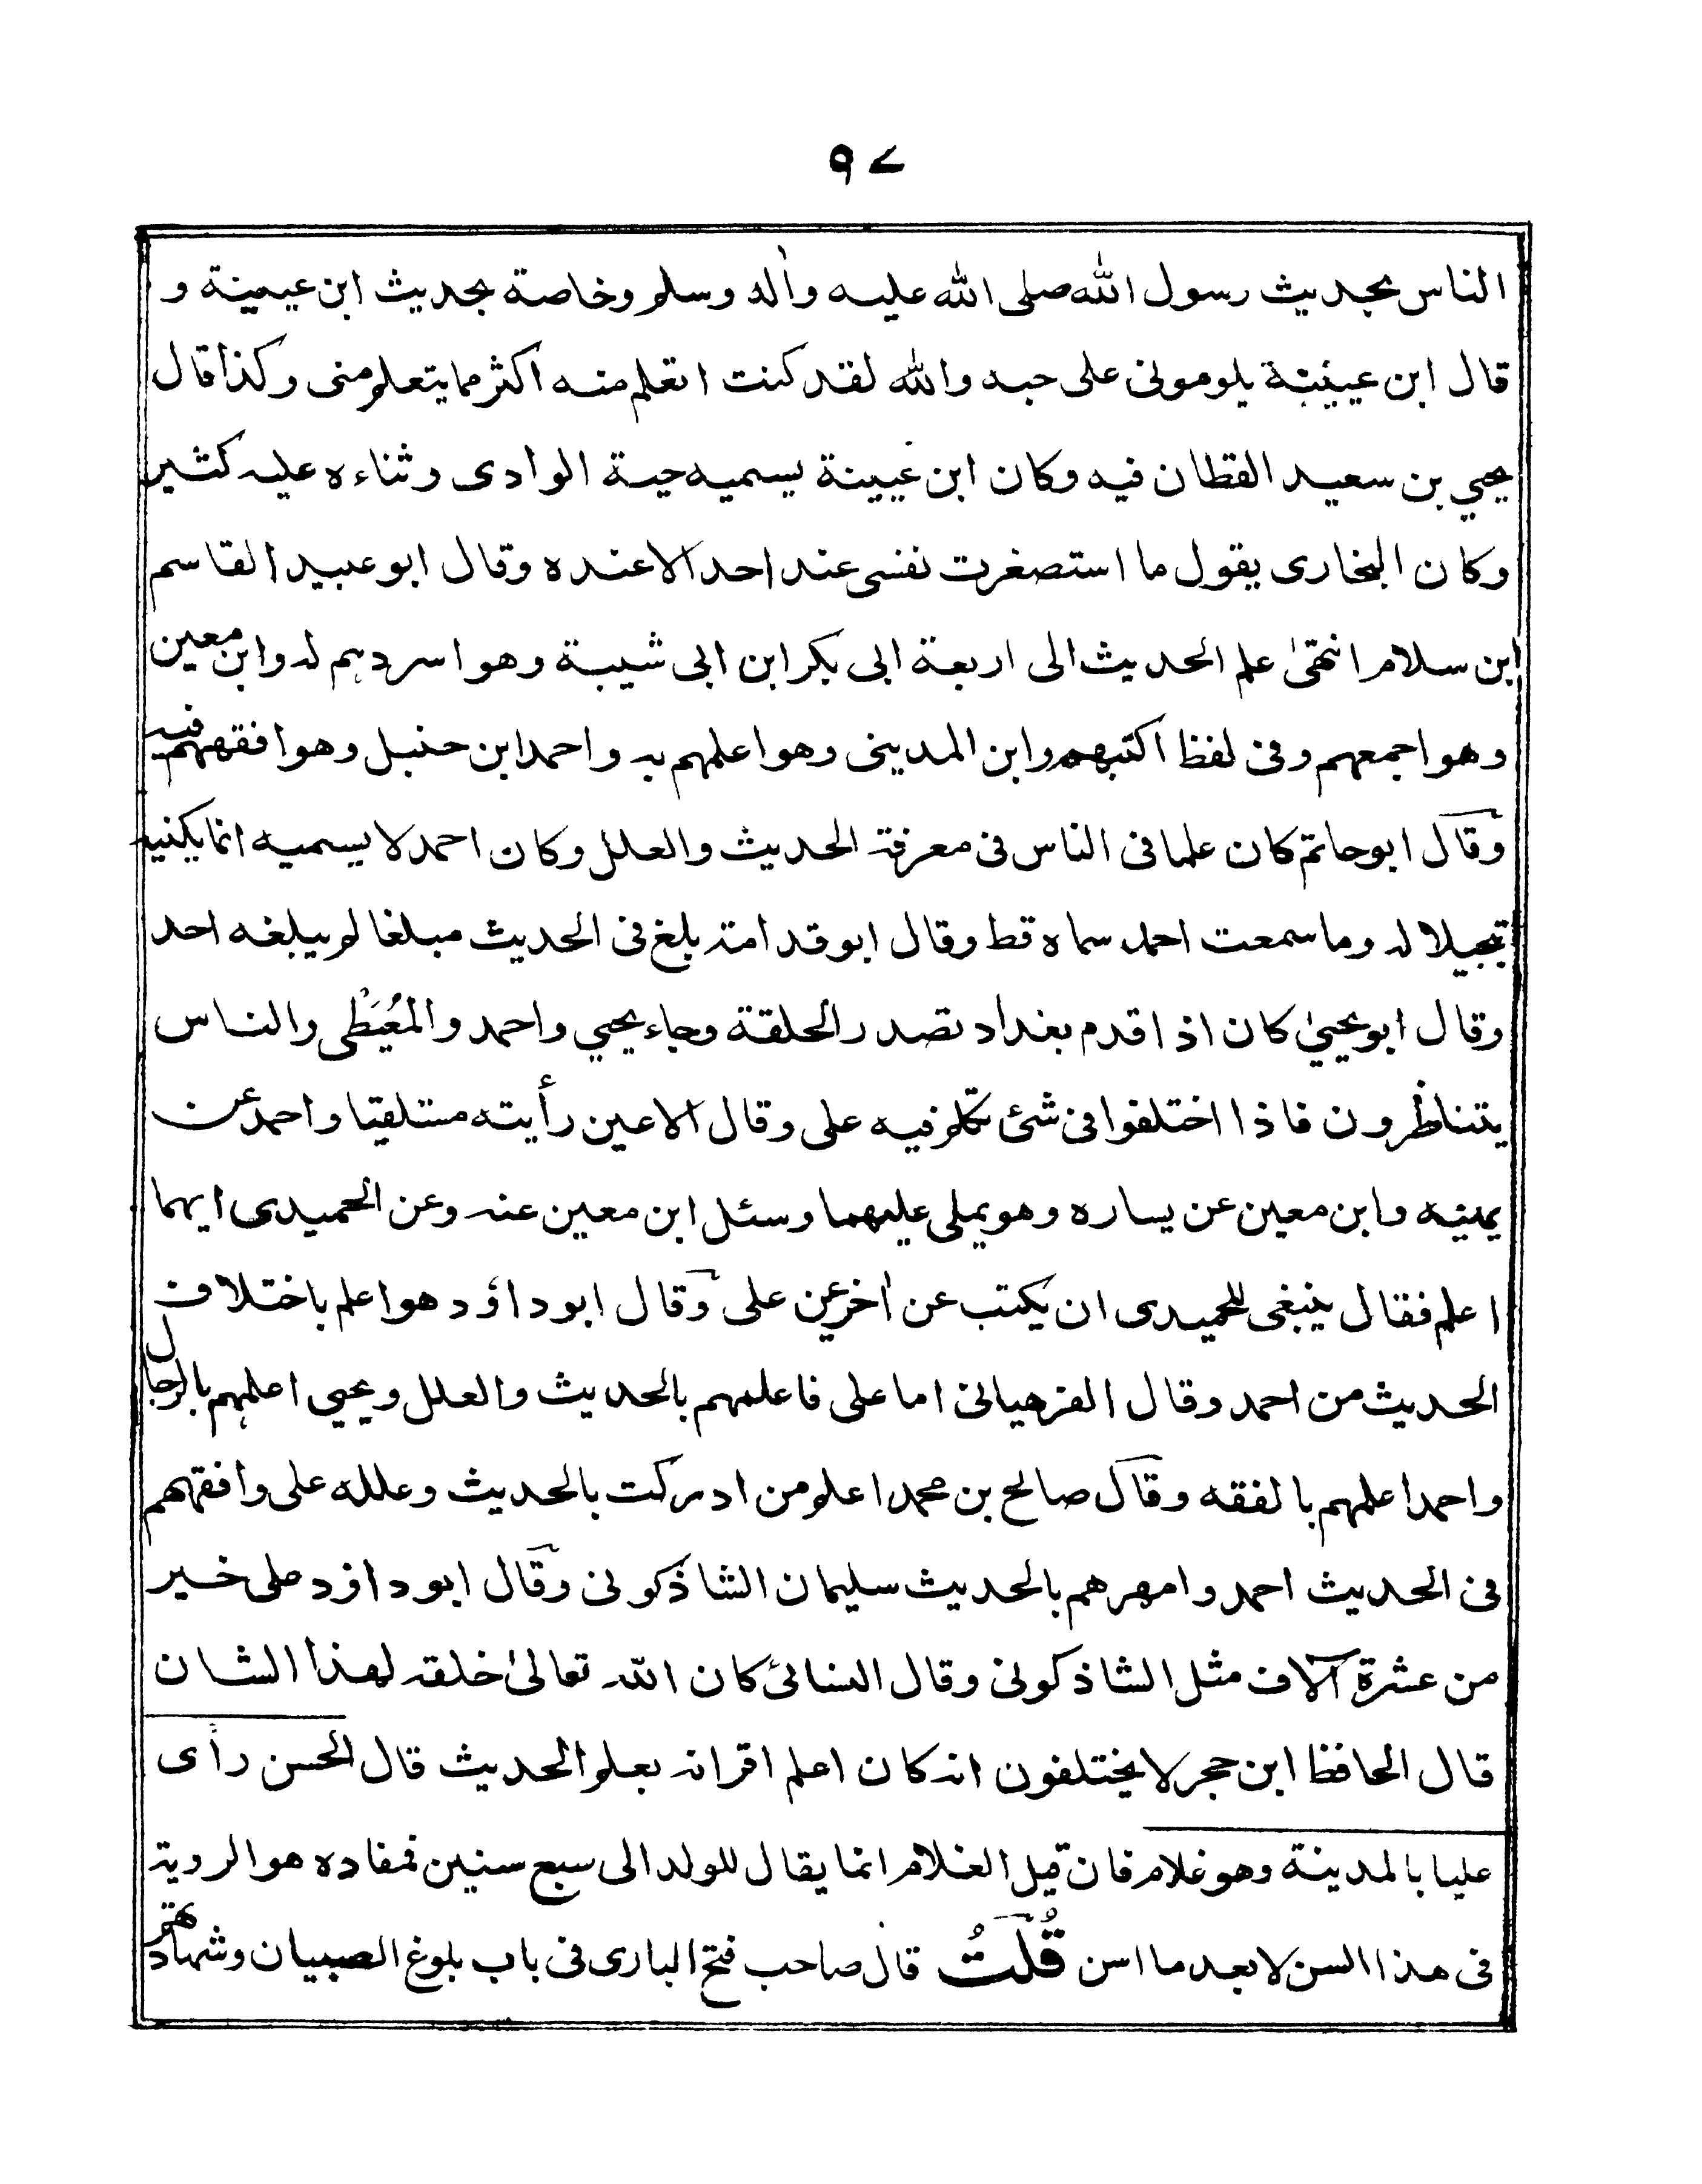 ۹۷
الناس بحديث رسول الله صلى الله عليه واٰله وسلم وخاصة بحديث ابن عيينة و
قال ابن عيينة يلومونى على حبه والله لقد كنت اتعلم منه اكثر مما يتعلم منى وكذا قال
يحيي بن سعيد القطان فيه وكان ابن عيينة يسميه حية الوادى وثناءه عليه كثير
وكان البخارى يقول ما استصغرت نفسى عند احد الا عنده وقال ابو عبيد القاسم
ابن سلام انتهىٰ علم الحديث الى اربعة ابى بكر ابن ابى شيبة وهو اسردهم له وابن معين
وهو اجمعهم وفى لفظ اكتبهم وابن المدينى وهو اعلمهم به واحمد ابن حنبل وهو افقههم فيه
وقال ابو حاتم كان علما فى الناس فى معرفة الحديث والعلل وكان احمد لا يسميه انما يكنيه
تبجيلا له وما سمعت احمد سماه قط وقال ابو قدامة بلغ فى الحديث مبلغا لم يبلغه احد
وقال ابو يحيىٰ كان اذا قدم بغداد تصدر الحلقة وجاء يحيي واحمد والمُعَيْطى والناس
يتناظرون فاذا اختلفوا فى شئ تكلم فيه على وقال الاعين رأيته مستلقيا واحمد عن
يمينه وابن معين عن يساره وهو يملى عليهما وسئل ابن معين عنه وعن الحميدى ايهما
اعلم فقال ينبغى للحميدى ان يكتب عن اٰخر عن على وقال ابو داؤد هو اعلم باختلاف
الحديث من احمد وقال الفرهيانى اما على فاعلمهم بالحديث والعلل ويحيي اعلمهم بالرجال
واحمد اعلمهم بالفقه وقال صالح بن محمد اعلم من ادركت بالحديث وعلله على وافقههم
فى الحديث احمد وامهرهم بالحديث سليمان الشاذكونى وقال ابو داؤد على خير
من عشرة آلاف مثل الشاذكونى وقال النسائى كان الله تعالىٰ خلقه لهذا الشان
قال الحافظ ابن حجر لا يختلفون انه كان اعلم اقرانه بعلم الحديث قال الحسن رأى
عليا بالمدينة وهو غلام فان قيل الغلام انما يقال للولد الى سبع سنين فمفاده هو الروية
فى هذا السن لا بعد ما اسن قُلتُ قال صاحب فتح البارى فى باب بلوغ الصبيان وشهادتهم